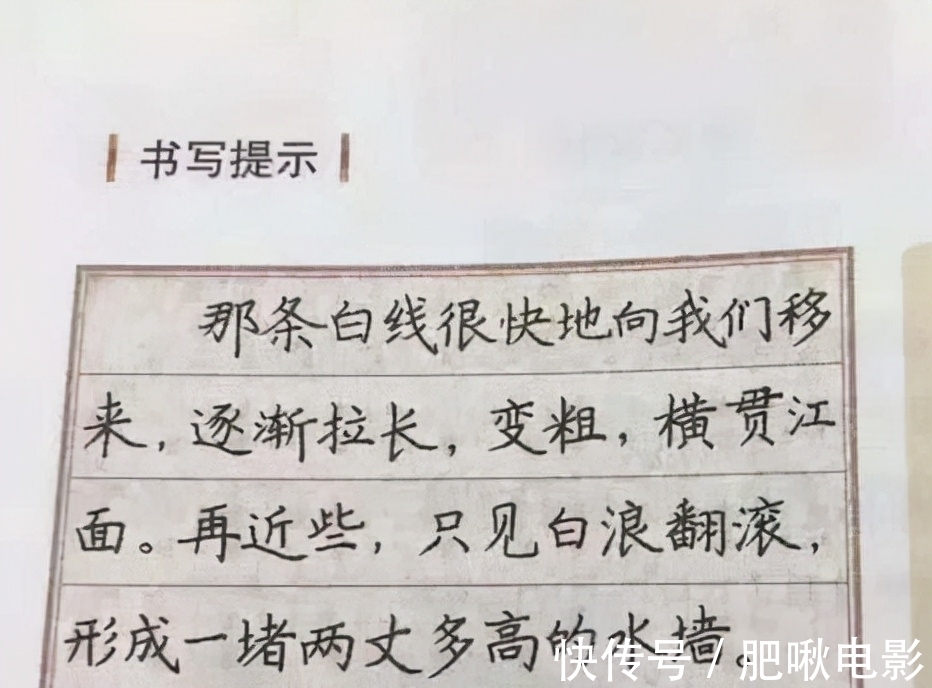 书写提示
那条白线很快地向我们移
来，逐渐拉长，变粗，横贯江
面。再近些，只见白浪翻滚，
形成一堵两丈多高的水墙。
快传号 / 肥啾电影